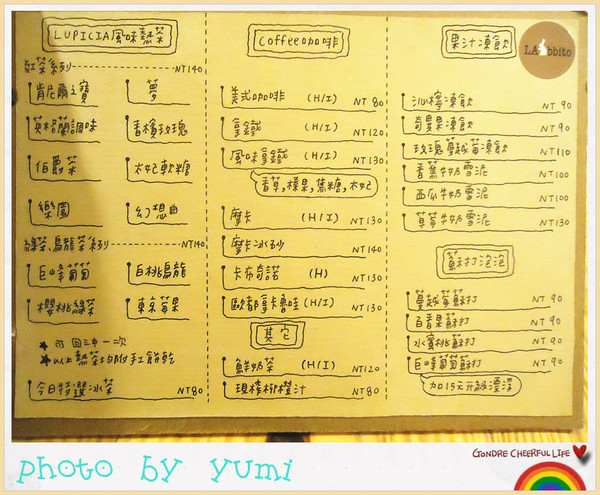 LUPICIA風味熱茶
紅茶系列 NT140
肯尼爾之寶 夢
英格蘭調味 香檳玫瑰
伯爵茶 太妃軟糖
樂園 幻想曲
綠茶、烏龍茶系列 NT140
巨峰葡萄 白桃烏龍
櫻桃綠茶 東京蘋果
★可回沖一次
★以上熱茶均附手工餅乾
今日特選冰茶 NT80
Coffee咖啡
美式咖啡 (H/I) NT 80
拿鐵 (H/I) NT120
風味拿鐵 (H/I) NT130
香草,榛果,焦糖,太妃
摩卡 (H/I) NT130
摩卡冰砂 NT140
卡布奇諾 (H) NT130
歐都拿卡魯哇(H/I) NT130
其它
鮮奶茶 (H/I) NT120
現榨柳橙汁 NT80
果汁凍飲
LArabbito
沁檸凍飲 NT 90
奇異果凍飲 NT 90
玫瑰蔓越莓凍飲 NT110
香蕉牛奶雪泥 NT100
西瓜牛奶雪泥 NT100
草莓牛奶雪泥 NT130
蘇打泡泡
蔓越莓蘇打 NT 90
百香果蘇打 NT 90
水蜜桃蘇打 NT 90
巨峰葡萄蘇打 NT 90
加15元升級漂浮
photo by yumi
GONDRE CHEERFUL LIFE